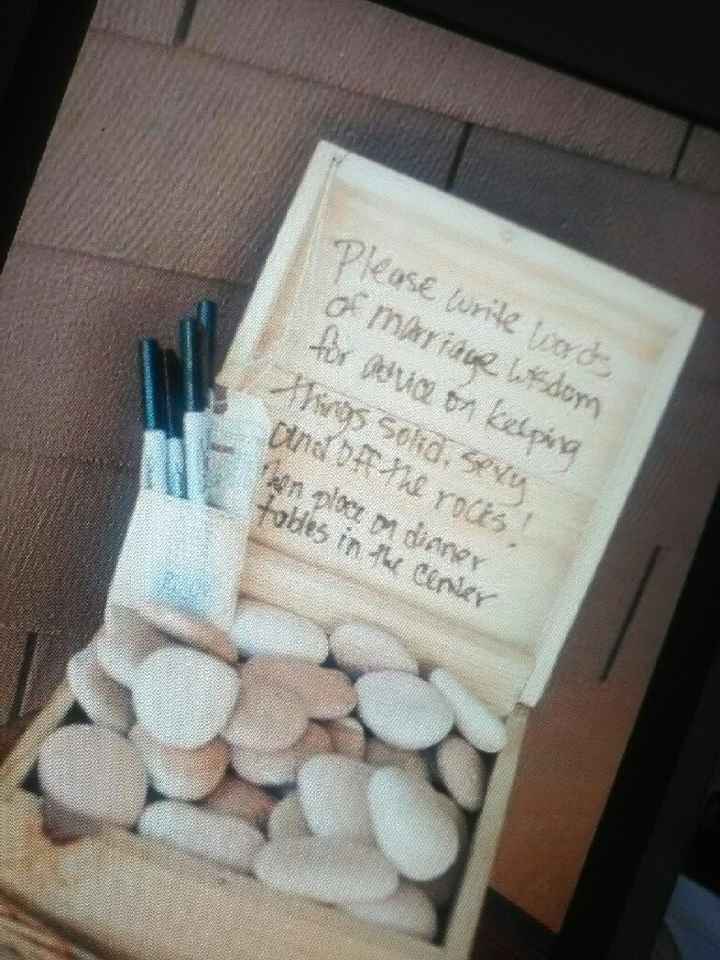 Please write words
of marriage wisdom
for advice on keeping
things solid, sexy
and off the rocks!
then place on dinner
tables in the center